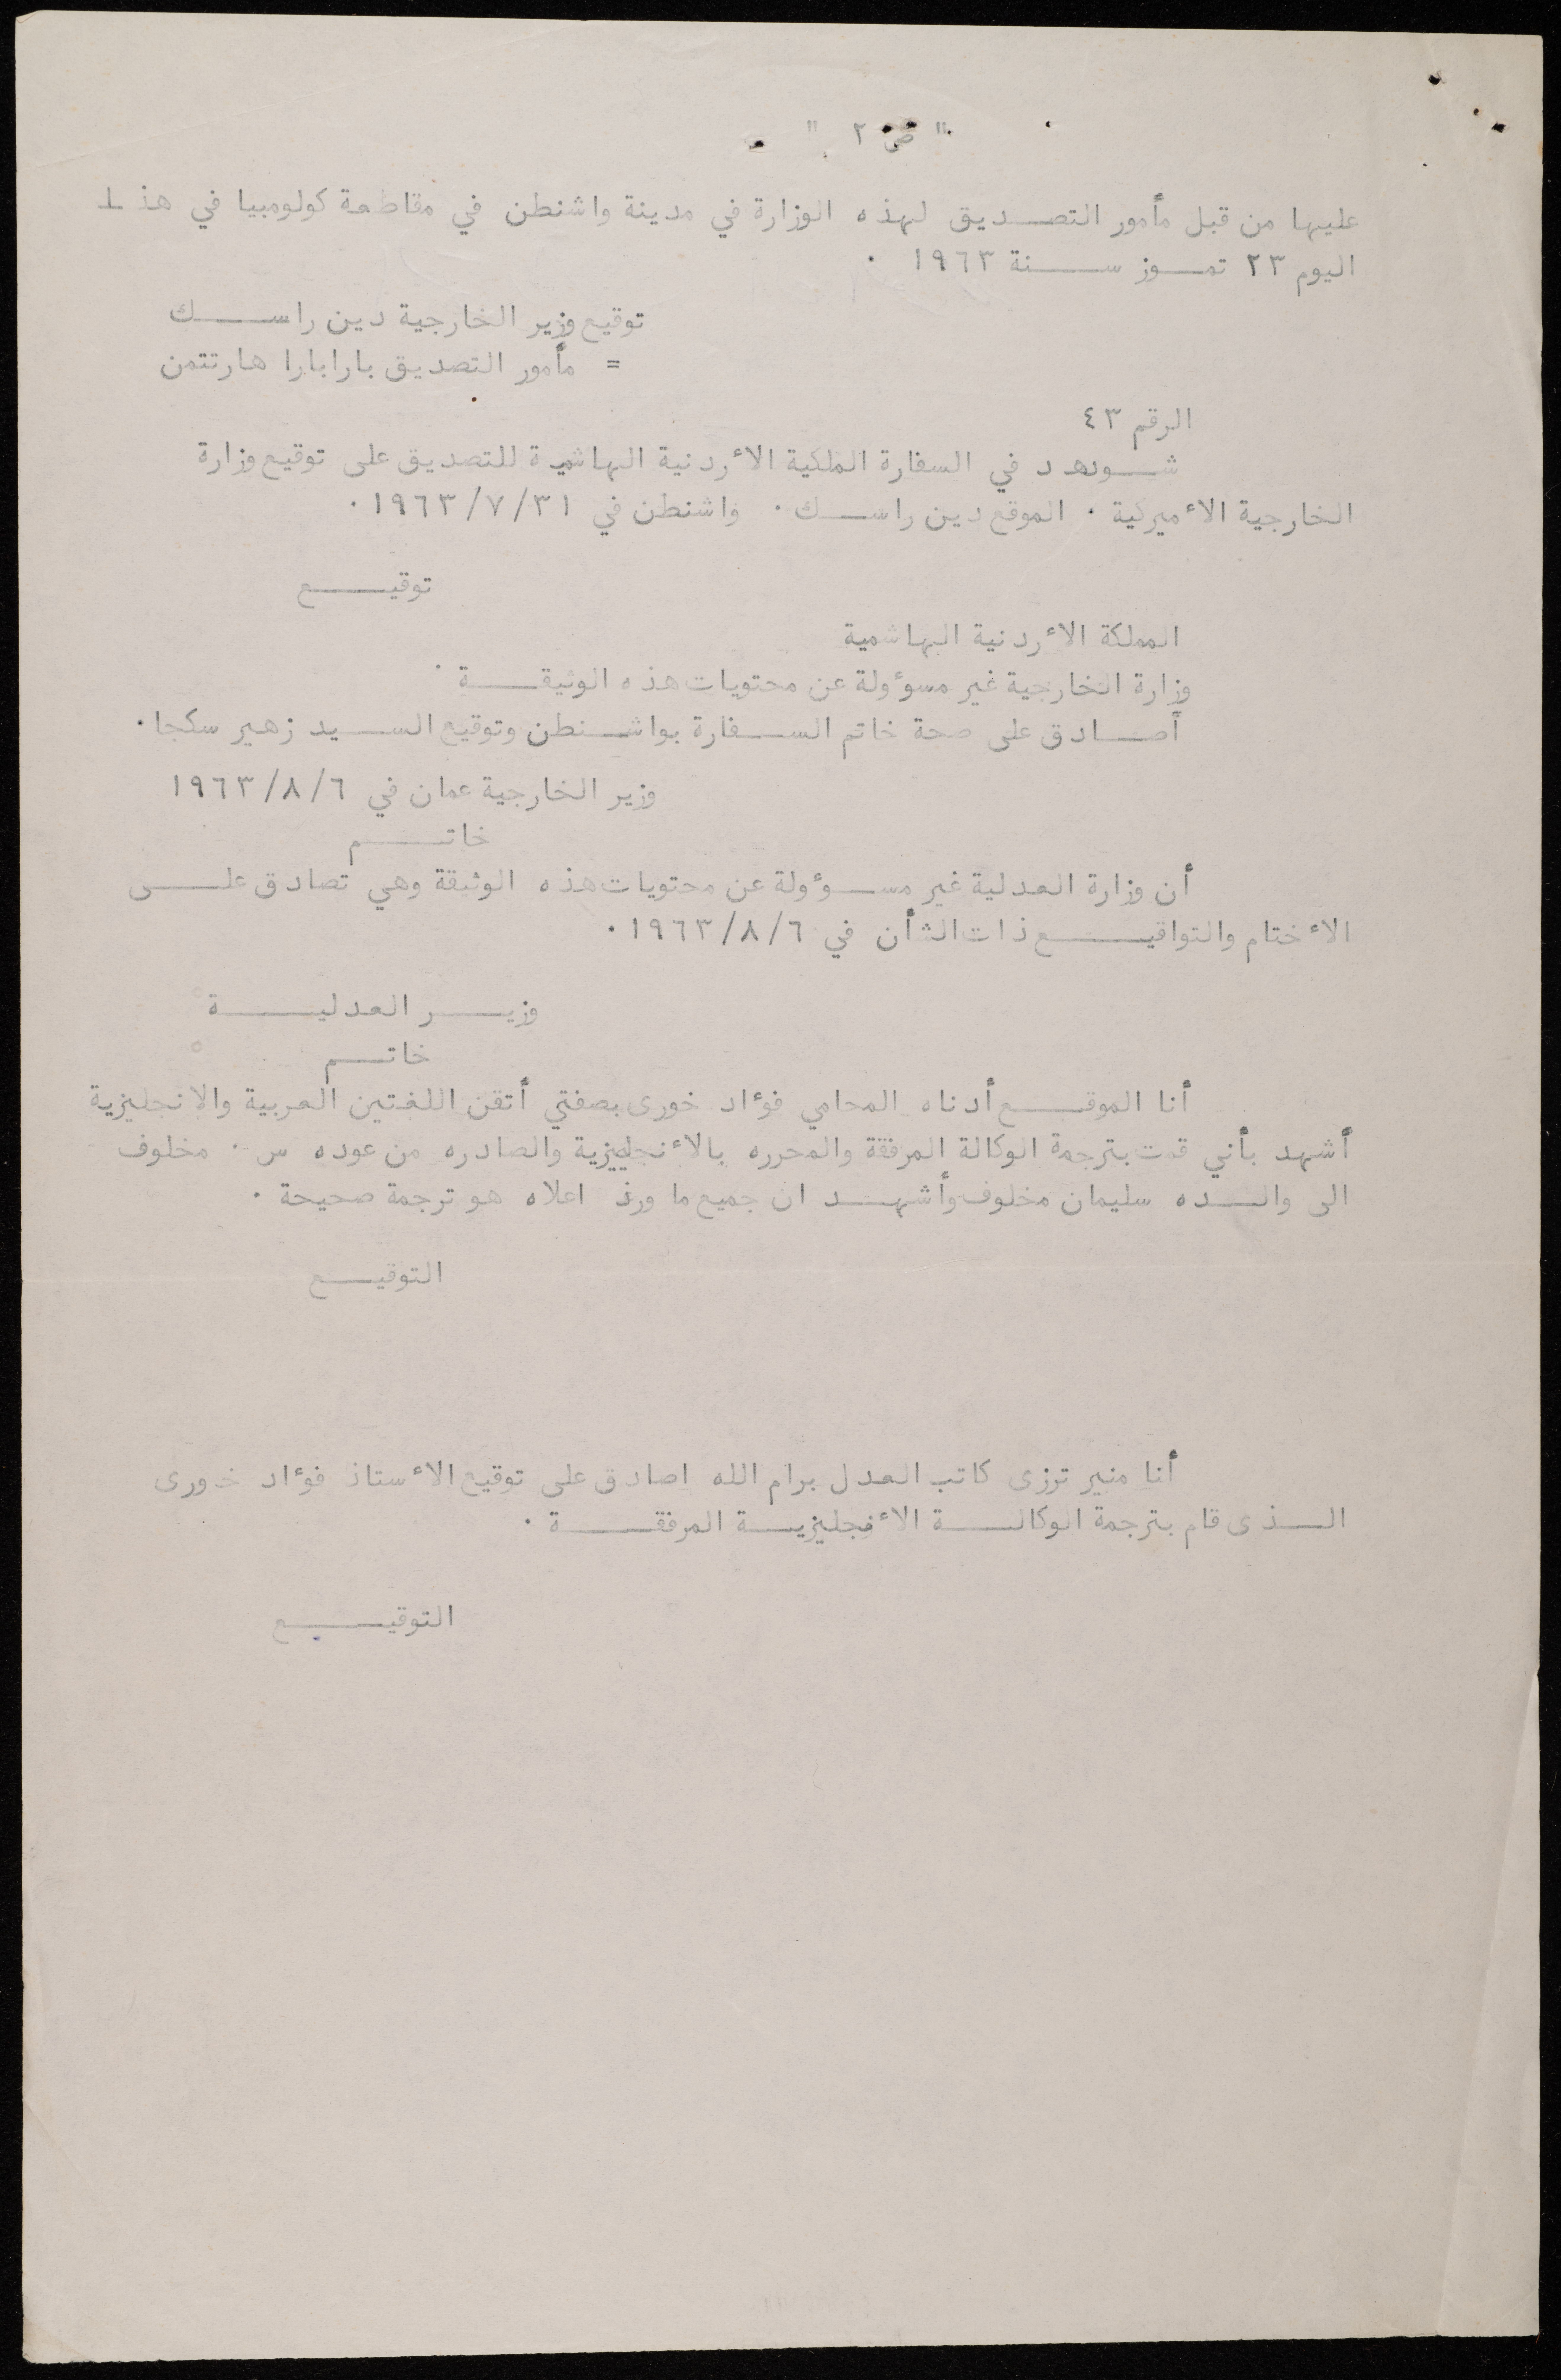 " ص ٢ "
عليها من قبل مأمور التصديق لهذه الوزارة في مدينة واشنطن في مقاطعة كولومبيا في هذا
اليوم ٢٣ تموز سنة ١٩٦٣ ٠
توقيع وزير الخارجية دين راسك
= مأمور التصديق بارابارا هارتتمن
الرقم ٤٣
شوهد في السفارة الملكية الأردنية الهاشمية للتصديق على توقيع وزارة
الخارجية الأميركية ٠ الموقع دين راسك ٠ واشنطن في ١٩٦٣/٧/٣١ ٠
توقيع
المملكة الأردنية الهاشمية
وزارة الخارجية غير مسوءولة عن محتويات هذه الوثيقة ٠
أصادق على صحة خاتم السفارة بواشنطن وتوقيع السيد زهير سكجا ٠
وزير الخارجية عمان في ١٩٦٣/٨/٦
خاتم
أن وزارة العدلية غير مسوءولة عن محتويات هذه الوثيقة وهي تصادق على
الأختام والتواقيع ذات الشأن في ١٩٦٣/٨/٦ ٠
وزير العدلية
خاتم
أنا الموقع أدناه المحامي فوءاد خورى بصفتي أتقن اللغتين العربية والانجليزية
أشهد بأني قمت بترجمة الوكالة المرفقة والمحرره بالأنجليزية والصادره من عوده س ٠ مخلوف
الى والده سليمان مخلوف وأشهد ان جميع ما ورد اعلاه هو ترجمة صحيحة ٠
التوقيع
أنا منير ترزى كاتب العدل برام الله اصادق على توقيع الأستاذ فوءاد خورى
الذى قام بترجمة الوكالة الأنجليزية المرفقة ٠
التوقيع